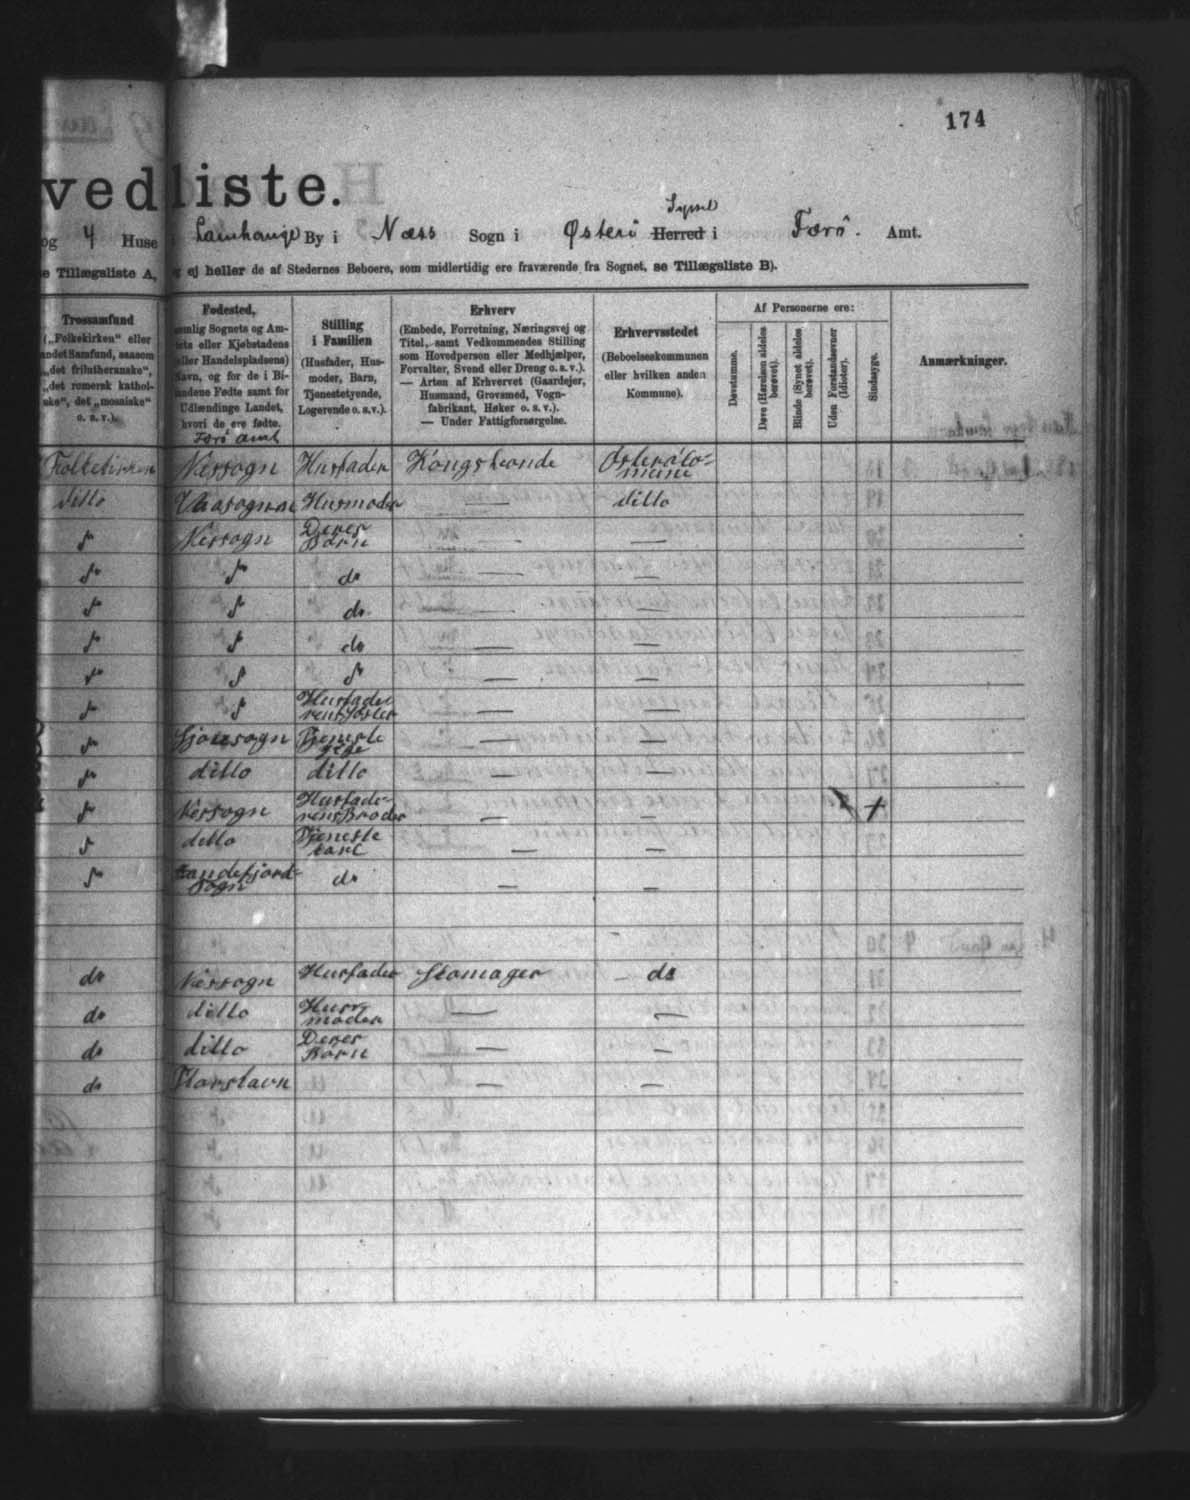 174
vedliste.
og 4 Huse i Lamhauge By i Næss Sogn i Østerö Syssel Herred i Færö. Amt.
e Tillægsliste A, og ej heller de af Stedernes Beboere, som midlertidig ere fraværende fra Sognet, se Tillægsliste B).
Trossamfund
(„Folkekirken“ eller
andet Samfund, saasom
„det frilutheranske“,
„det romersk kathol-
ske“, det „mosaiske“
o. s. v.).
Fødested,
nemlig Sognets og Am-
tets eller Kjøbstadens
(eller Handelspladsens)
Navn, og for de i Bi-
landene Fødte samt for
Udlændinge Landet,
hvori de ere fødte.
Færö Amt
Stilling
i Familien
(Husfader, Hus-
moder, Barn,
Tjenestetyende,
Logerende o. s. v.).
Erhverv
(Embede, Forretning, Næringsvej og
Titel, samt Vedkommendes Stilling
som Hovedperson eller Medhjælper,
Forvalter, Svend eller Dreng o. s. v.).
— Arten af Erhvervet (Gaardejer,
Husmand, Grovsmed, Vogn-
fabrikant, Høker o. s. v.).
— Under Fattigforsørgelse.
Erhvervsstedet
(Beboelseskommunen
eller hvilken anden
Kommune).
Af Personerne ere:
Døvstumme.
Døve (Hørelsen aldeles
berøvet).
Blinde (Synet aldeles
berøvet).
Uden Forstandsevner
(Idioter).
Sindssyge.
Anmærkninger.
Folkekirken Næssogn Husfader Kongsbonde Österökomune
ditto Husmoder — ditto
Næssogn Deres Børn — —
do — —
do — —
do — —
— —
Husfaderens Søster — —
Tjenestepige — —
ditto ditto — —
Næssogn Husfaderens Broder — — +
ditto Tjenestekarl — —
Sandefjord Sogn do — —
do Næssogn Husfader Skomager — do
do ditto Husmoder — —
do ditto Deres Børn — —
do Thorshavn — —